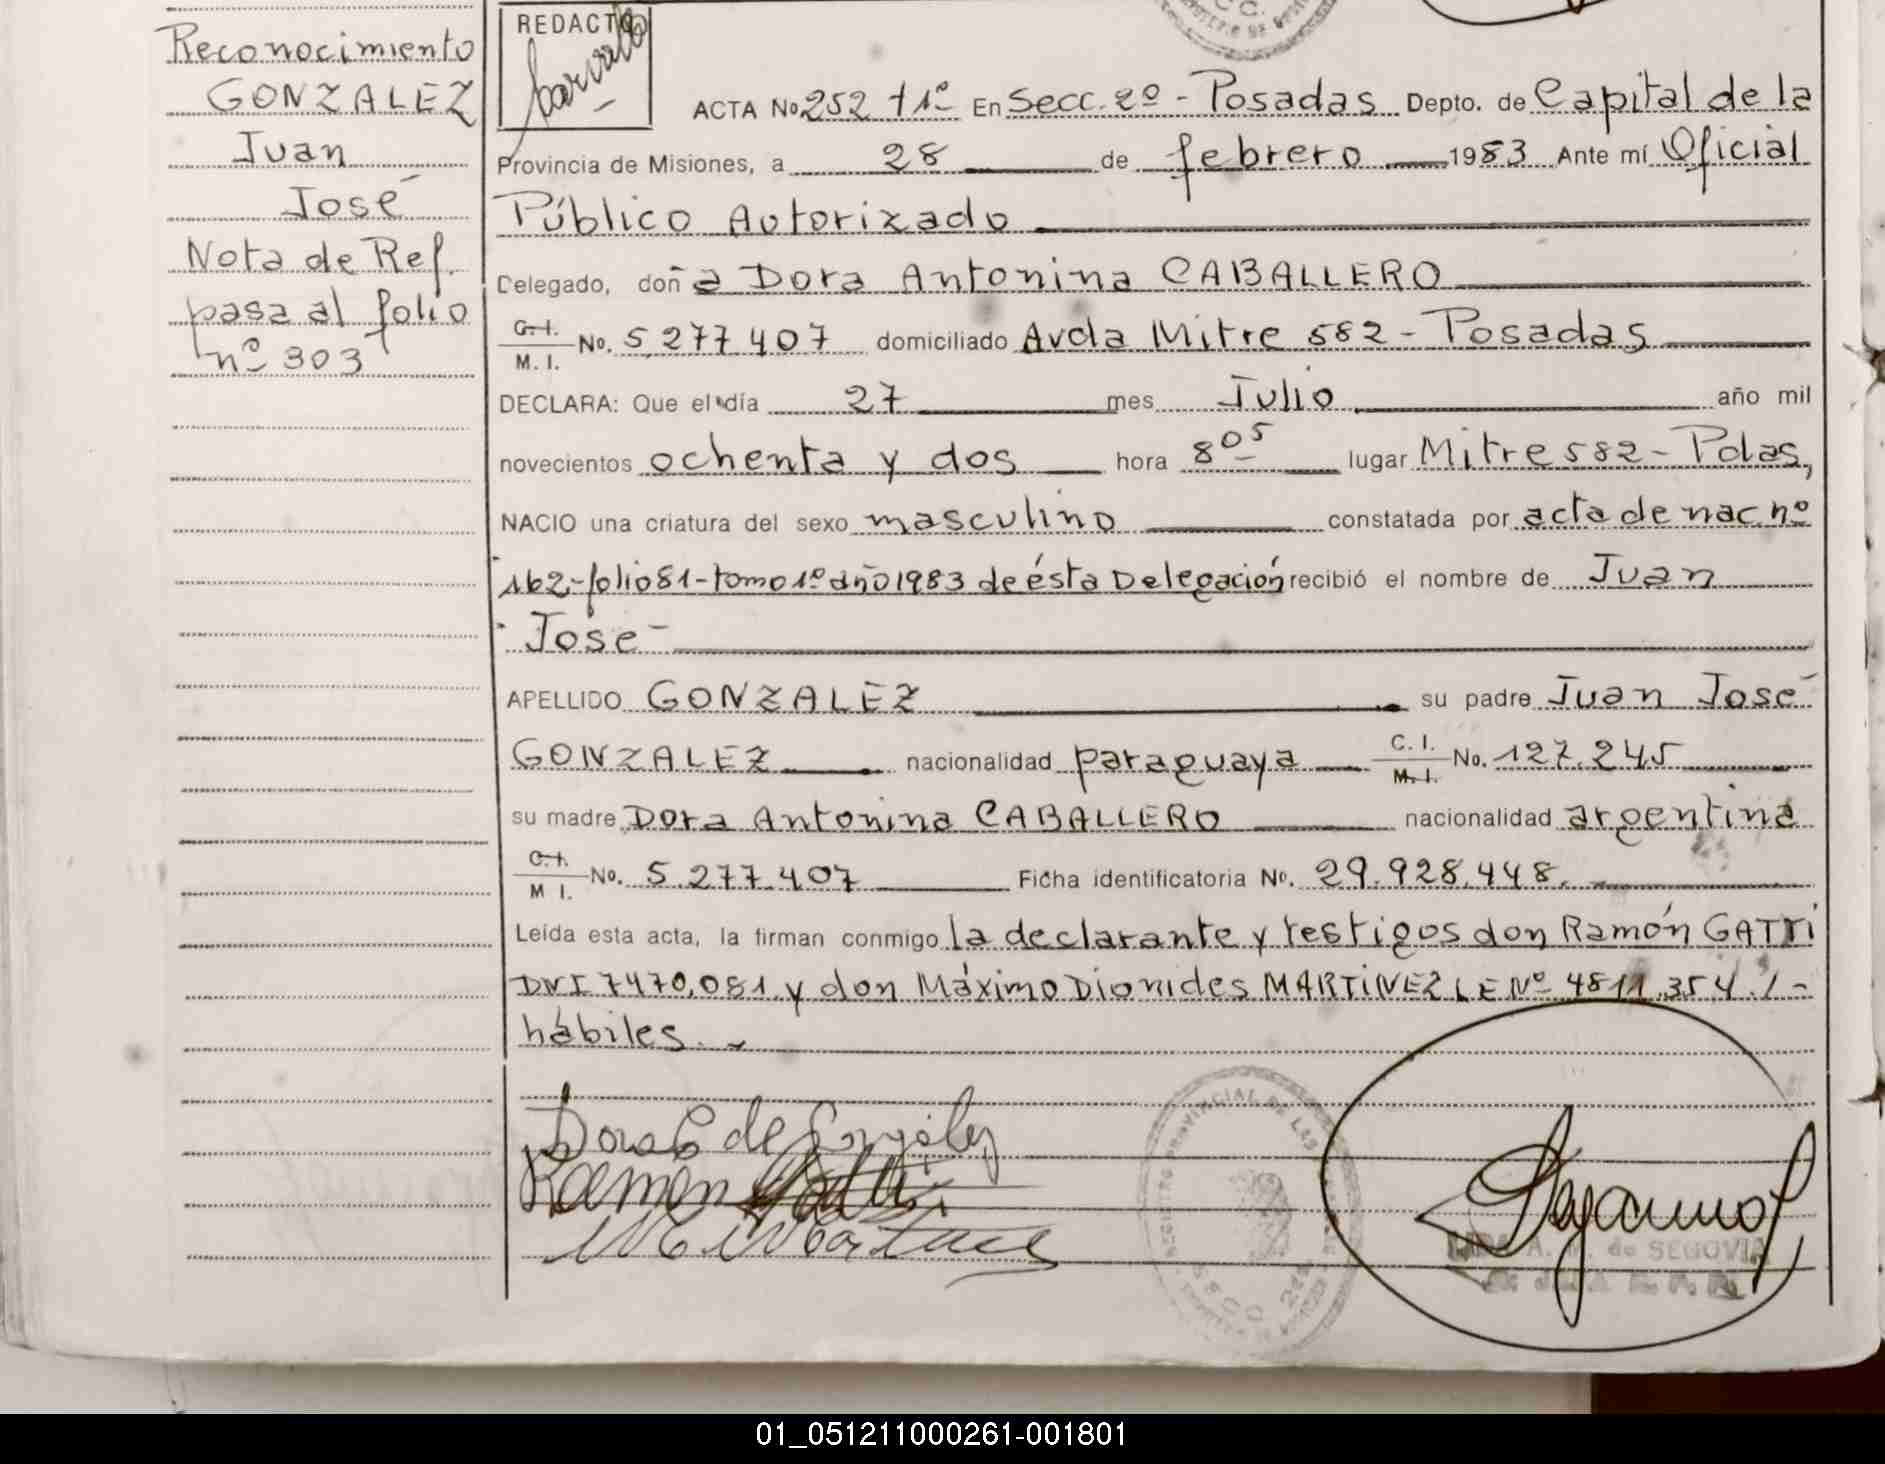 Reconocimiento
GONZALEZ
Juan
José
Nota de Ref.
pasa al folio
nº 303
REDACTO
ACTA No 252 t1º En Secc. 2º - Posadas Depto. de Capital de la
Provincia de Misiones, a 28 de febrero 1983 Ante mí Oficial
Público Autorizado
Delegado, doña Dora Antonina CABALLERO
C.I.
M. I. No. 5.277.407 domiciliado Avda Mitre 582 - Posadas
DECLARA: Que el día 27 mes Julio año mil
novecientos ochenta y dos hora 8 05 lugar Mitre 582 - Pdas,
NACIO una criatura del sexo masculino constatada por acta de nac. nº
162-folio 81-tomo 1º año 1983 de ésta Delegación recibió el nombre de Juan
José
APELLIDO GONZALEZ su padre Juan José
GONZALEZ nacionalidad paraguaya C. I.
M. I. No. 127.245
su madre Dora Antonina CABALLERO nacionalidad argentina
C.I.
M I. No. 5.277.407 Ficha identificatoria No. 29.928.448.
Leída esta acta, la firman conmigo la declarante y testigos don Ramón GATTI
DNI 7470.081 y don Máximo Dionides MARTINEZ LE Nº 4811.354./-
hábiles.
Dora C de González
Ramon
de SEGOVIA
01_051211000261-001801